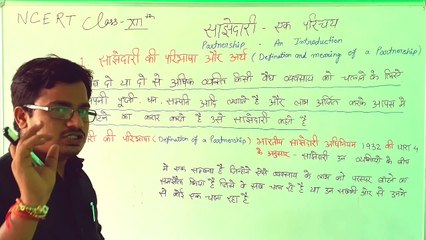 NCERT Class-XII th
साझेदारी - एक परिचय
Partnership - An Introduction
साझेदारी की परिभाषा और अर्थ (Definition and meaning of a Partnership)
दो या दो से अधिक व्यक्ति किसी वैध व्यवसाय को चलाने के लिए
पूंजी, धन, सम्पत्ति आदि लगाते हैं और लाभ अर्जित करके आपस में
बांटने का करार करते हैं उसे साझेदारी कहते हैं
की परिभाषा (Definition of a Partnership) भारतीय साझेदारी अधिनियम 1932 की धारा 4
के अनुसार - साझेदारी उन व्यक्तियों के बीच
में एक सम्बन्ध है जिन्होंने ऐसे व्यवसाय के लाभ को परस्पर बांटने का
समझौता किया है जिसे वे सब चला रहे हैं या उन सबकी ओर से उनमें
से कोई एक चला रहा है